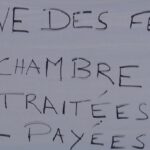 VE DES FE
CHAMBRE
TRAITÉES
- PAYÉES